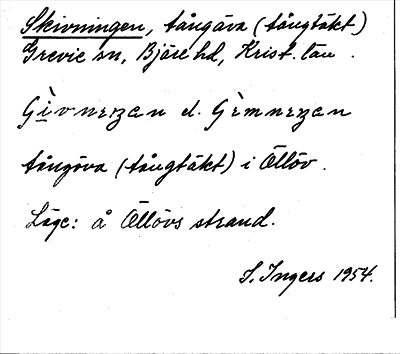 Skivningen, tångäva (tångtäkt)
Grevie sn, Bjäre hd, Krist. län.
tångäva (tångtäkt) i Öllöv.
Läge: å Öllövs strand.
S. Ingers 1954.